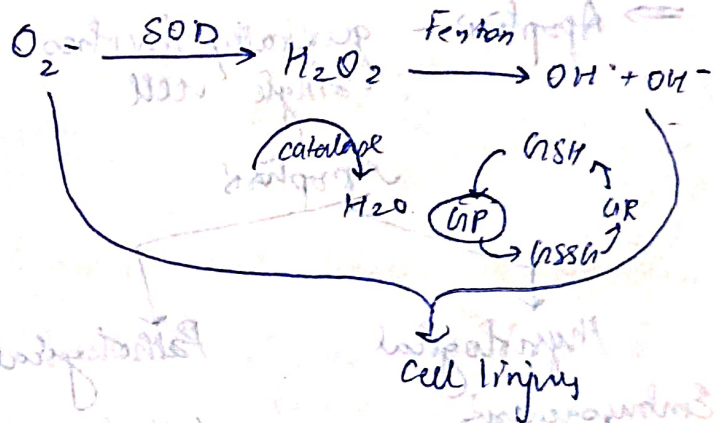 O₂⁻ SOD H₂O₂ Fenton OH˙ + OH⁻
catalase GSH
H2O GP GR
GSSG
Cell Injury